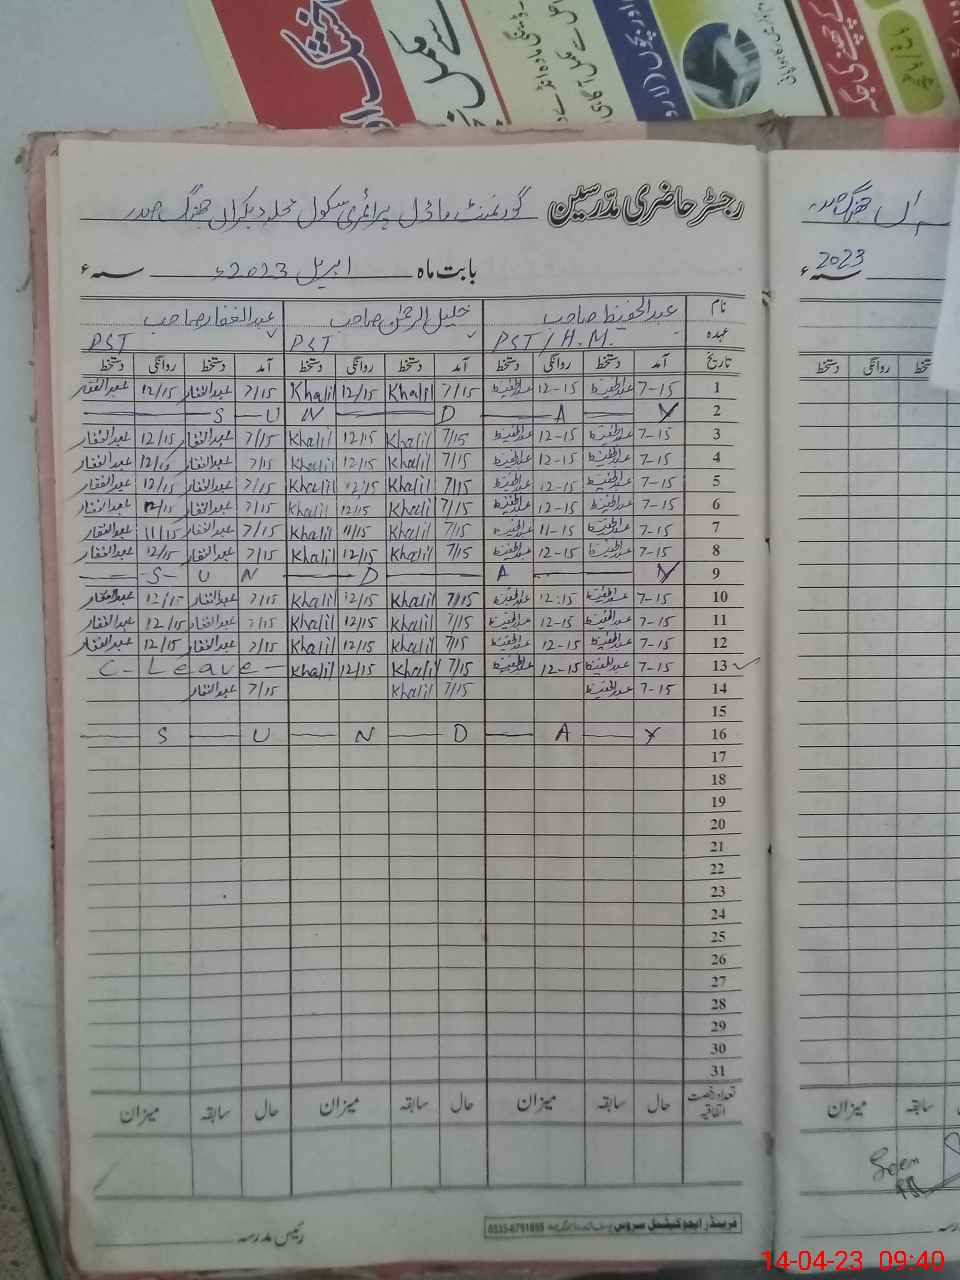 رجسٹر حاضری مدرسین گورنمنٹ ماڈل پرائمری سکول محلہ دبکراں جھنگ صدر
بابت ماہ اپریل 2023ء سنہء
نام عبدالحفیظ صاحب خلیل الرحمٰن صاحب عبدالغفار صاحب
عہدہ PST/H.M. PST PST
تاریخ آمد دستخط روانگی دستخط آمد دستخط روانگی دستخط آمد دستخط روانگی دستخط
1 7-15 عبدالحفیظ 12-15 عبدالحفیظ 7/15 Khalil 12/15 Khalil 7/15 عبدالغفار 12/15 عبدالغفار
2 S U N D A Y
3 7-15 عبدالحفیظ 12-15 عبدالحفیظ 7/15 Khalil 12/15 Khalil 7/15 عبدالغفار 12/15 عبدالغفار
4 7-15 عبدالحفیظ 12-15 عبدالحفیظ 7/15 Khalil 12/15 Khalil 7/15 عبدالغفار 12/15 عبدالغفار
5 7-15 عبدالحفیظ 12-15 عبدالحفیظ 7/15 Khalil 12/15 Khalil 7/15 عبدالغفار 12/15 عبدالغفار
6 7-15 عبدالحفیظ 12-15 عبدالحفیظ 7/15 Khalil 12/15 Khalil 7/15 عبدالغفار 12/15 عبدالغفار
7 7-15 عبدالحفیظ 11-15 عبدالحفیظ 7/15 Khalil 11/15 Khalil 7/15 عبدالغفار 11/15 عبدالغفار
8 7-15 عبدالحفیظ 12-15 عبدالحفیظ 7/15 Khalil 12/15 Khalil 7/15 عبدالغفار 12/15 عبدالغفار
9 S U N D A Y
10 7-15 عبدالحفیظ 12:15 عبدالحفیظ 7/15 Khalil 12/15 Khalil 7/15 عبدالغفار 12/15 عبدالغفار
11 7-15 عبدالحفیظ 12-15 عبدالحفیظ 7/15 Khalil 12/15 Khalil 7/15 عبدالغفار 12/15 عبدالغفار
12 7-15 عبدالحفیظ 12-15 عبدالحفیظ 7/15 Khalil 12/15 Khalil 7/15 عبدالغفار 12/15 عبدالغفار
13 7-15 عبدالحفیظ 12-15 عبدالحفیظ 7/15 Khalil 12/15 Khalil C-Leave
14 7-15 عبدالحفیظ 7/15 Khalil 7/15 عبدالغفار
15
16 S U N D A Y
17
18
19
20
21
22
23
24
25
26
27
28
29
30
31
تعداد رخصت اتفاقیہ حال سابقہ میزان حال سابقہ میزان حال سابقہ میزان
فرینڈز ایجوکیشنل سروس
رئیس مدرسہ
جھنگ صدر
2023 سنہء
دستخط روانگی دستخط
سابقہ میزان
Seen
14-04-23 09:40